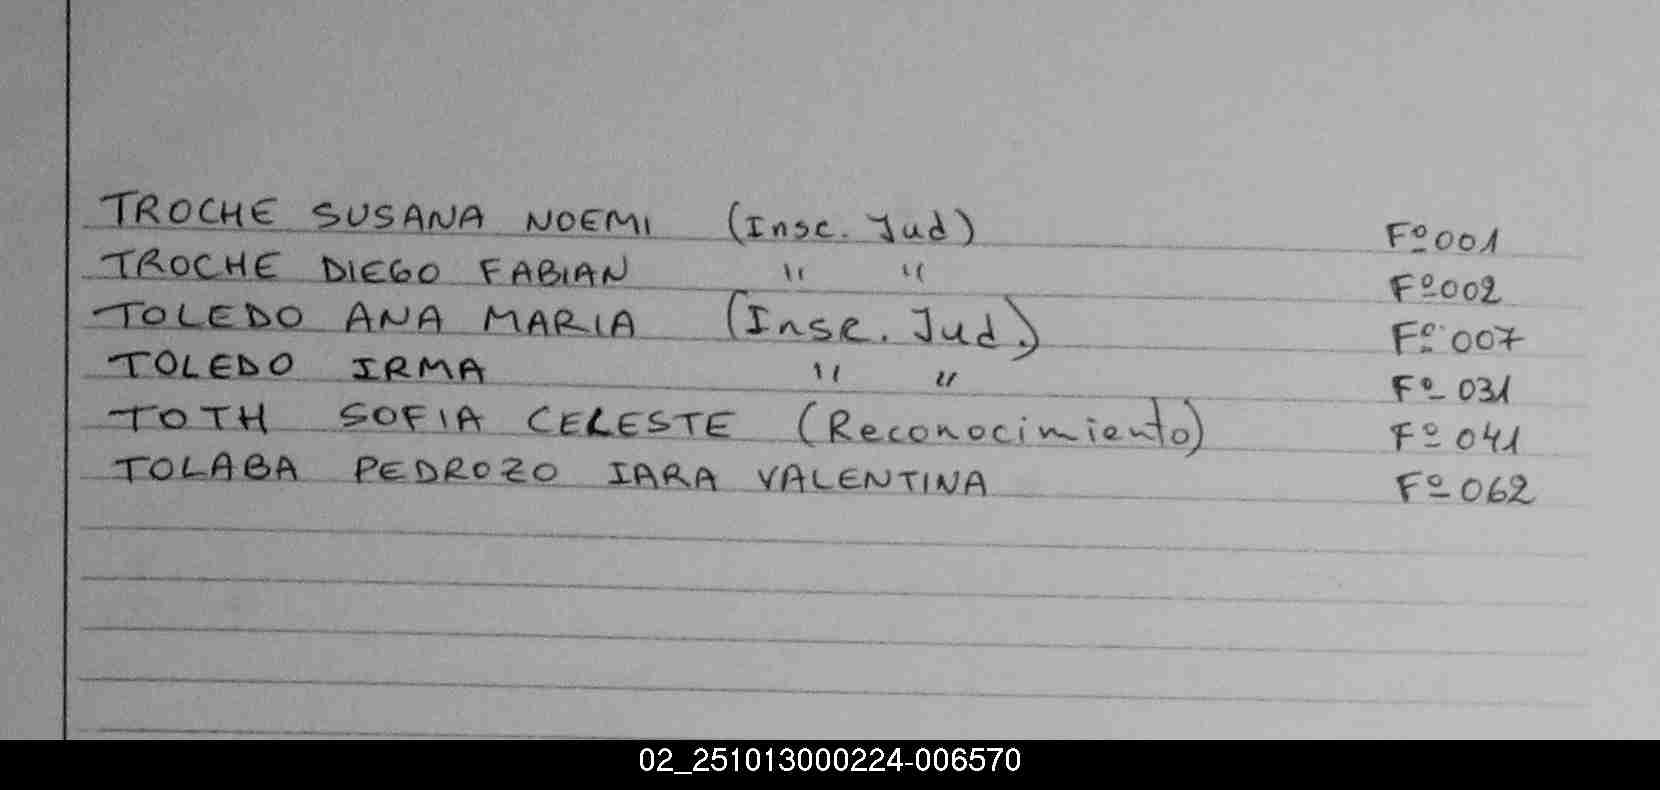 TROCHE SUSANA NOEMI (Insc. Jud) Fº001
TROCHE DIEGO FABIAN " " Fº002
TOLEDO ANA MARIA (Insc. Jud.) Fº 007
TOLEDO IRMA " " Fº 031
TOTH SOFIA CELESTE (Reconocimiento) Fº 041
TOLABA PEDROZO IARA VALENTINA Fº 062
02_251013000224-006570